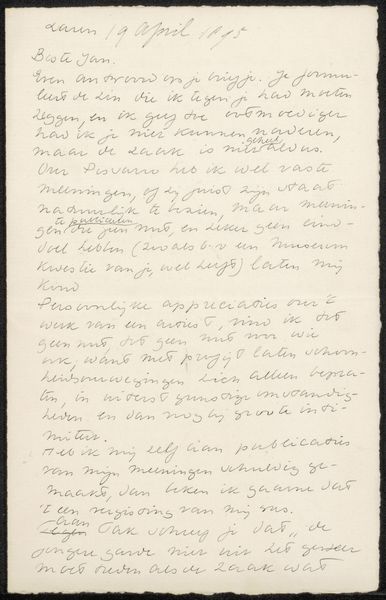 Laren 19 April 1895
Beste Jan.
Even antwoord op je briefje. Je formu-
leert de zin die ik tegen je had moeten
zeggen, en ik geef toe
had ik je niet kunnen naderen,
maar de zaak is niet geheel aldus.
Over Pissarro heb ik wel vaste
meeningen, of zij juist zijn staat
natuurlijk te bezien, maar meenin-
gen te publiceeren die jun nut, en zeker geen eind-
doel hebben (zooals b.v een Museum
kwestie van je, wel heeft) laten mij
koud
Persoonlijke appreciaties over 't
werk van een artiest, vind ik tot
geen nut, tot geen nut voor wie
ook, want met prijzijt laten schoon-
heidsoverwegingen zich alleen bepra-
ten, in uiterst gunstige omstandig-
heden en dan nog bij groote inti-
miteit.
Heb ik mij zelf aan publicaties
van mijn meeningen schuldig ge-
maakt, dan beken ik gaarne dat
't een vergissing van mij was.
aan Tak schreef je dat "de
jongere garde hier uit Het
moet treden als de zaak wat